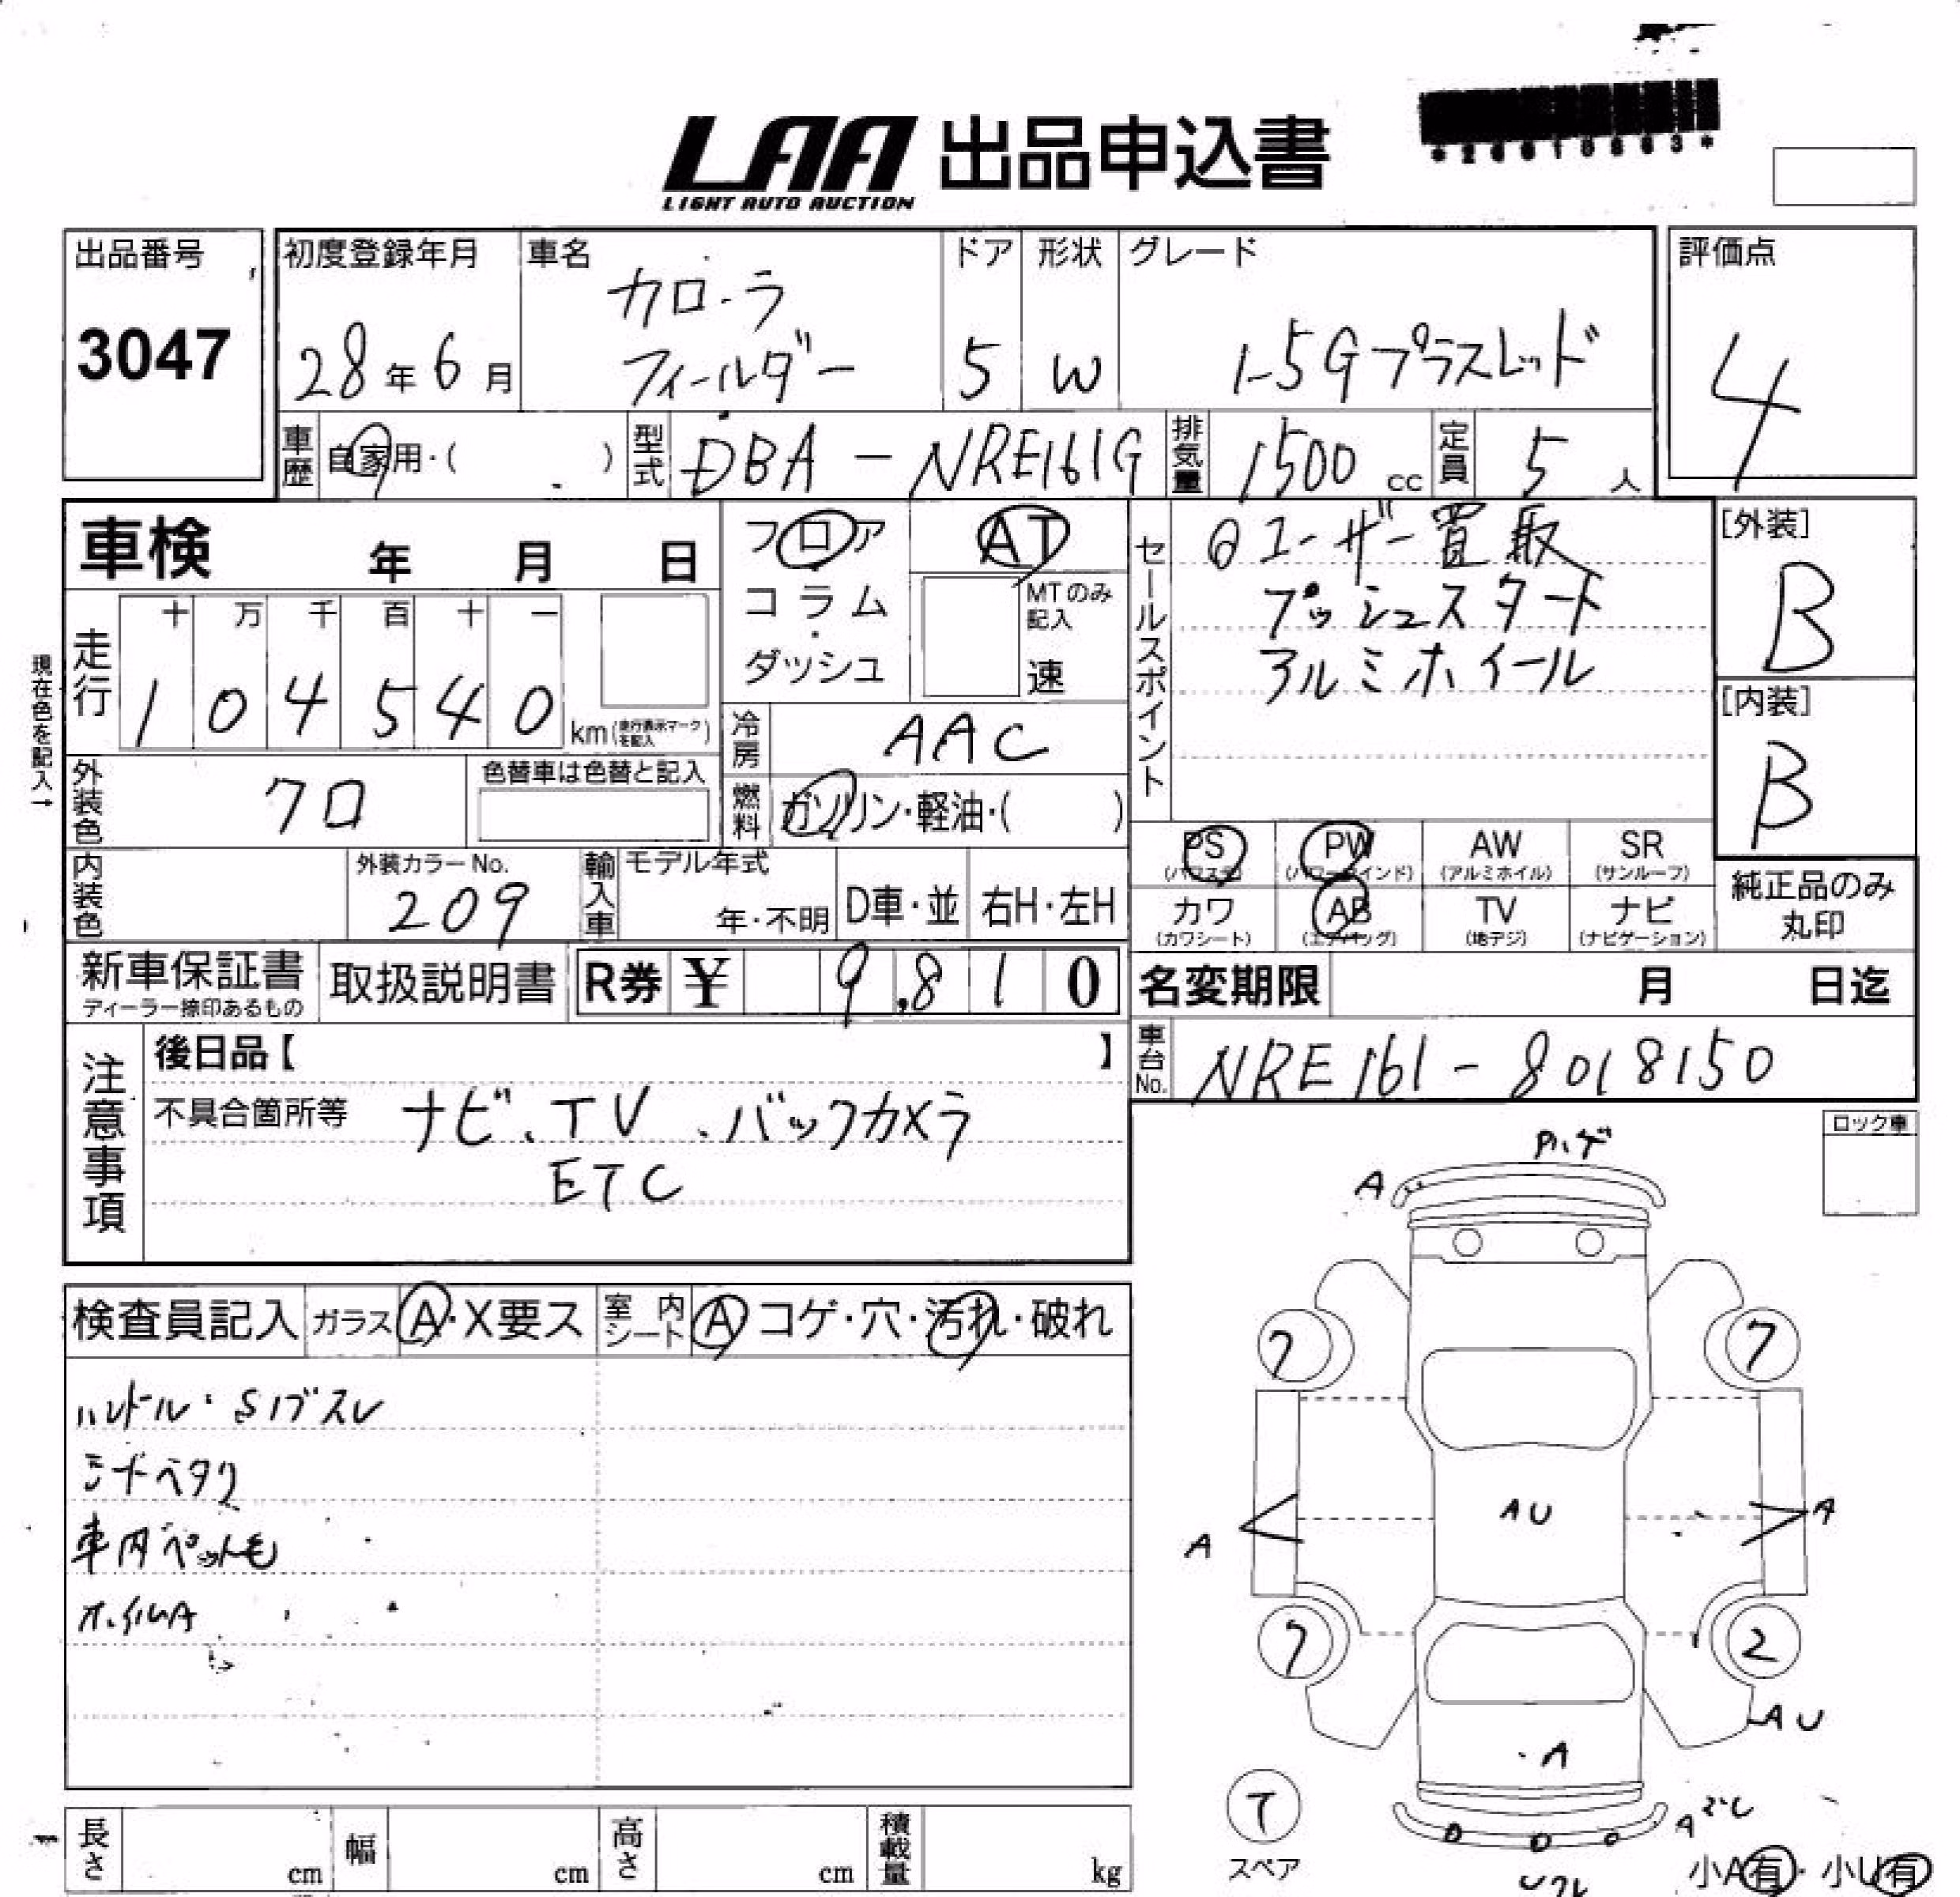 LAA 出品申込書
LIGHT AUTO AUCTION
出品番号
3047
初度登録年月
28年6月
車名
カローラ
フィールダー
ドア
5
形状
W
グレード
1.5Gプラスレッド
評価点
4
車歴
自家用・( )
型式
DBA-NRE161G
排気量
1500 cc
定員
5 人
車検 年 月 日
フロア
コラム
・
ダッシュ
AT
MTのみ記入
速
現在色を記入→
走行
十 万 千 百 十 一
1 0 4 5 4 0
km(走行表示マークを記入)
冷房
AAC
燃料
ガソリン・軽油・( )
セールスポイント
ユーザー買取
プッシュスタート
アルミホイール
[外装]
B
[内装]
B
外装色
クロ
色替車は色替と記入
内装色
外装カラーNo.
209
輸入車
モデル年式
年・不明
D車・並
右H・左H
PS
(パワステ)
PW
(パワーウインド)
AW
(アルミホイル)
SR
(サンルーフ)
カワ
(カワシート)
AB
(エアバッグ)
TV
(地デジ)
ナビ
(ナビゲーション)
純正品のみ
丸印
新車保証書
ディーラー捺印あるもの
取扱説明書
R券 ¥ 9,810
名変期限 月 日迄
車台No.
NRE161-8018150
注意事項
後日品【 】
不具合箇所等 ナビ、TV、バックカメラ
ETC
ロック車
検査員記入
ガラス A・X要ス
室内シート A コゲ・穴・汚れ・破れ
ハンドル・S1ブスレ
車内ペットモ
ホイルA
A
7
7
A
AU
A
7
2
AU
A
7
スペア
A
小A有・小U有
長さ cm
幅 cm
高さ cm
積載量 kg